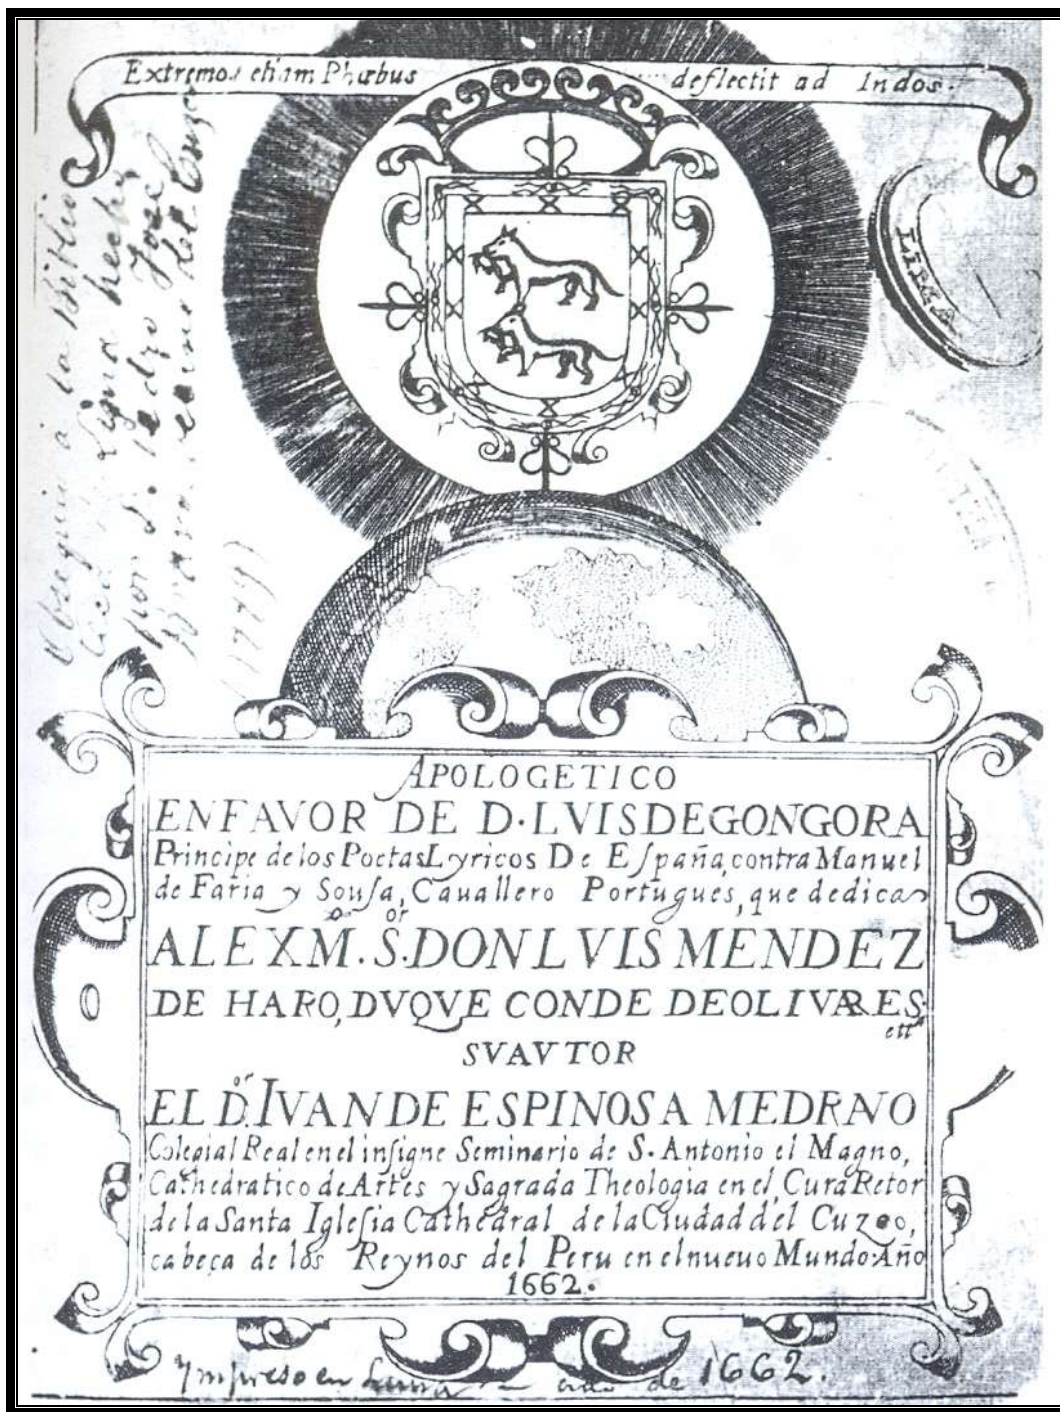 Extremos etiam Phœbus deflectit ad Indos.
LIMA
Obsequio a la Biblio
hecho
por D. Jose
del Cuzco
APOLOGETICO
EN FAVOR DE D. LVIS DE GONGORA
Principe de los Poetas Lyricos De Eſpaña, contra Manuel
de Faria y Souſa, Cauallero Portugues, que dedica
AL EXMº. Sºʳ. DON LVIS MENDEZ
DE HARO, DVQVE CONDE DE OLIVARES.
ettª
SV AVTOR
EL Dºʳ. IVAN DE ESPINOSA MEDRNO
Colegial Real en el inſigne Seminario de S. Antonio el Magno,
Cathedratico de Artes y Sagrada Theologia en el, Cura Retor
de la Santa Igleſia Cathedral de la Ciudad del Cuzco,
cabeça de los Reynos del Peru en el nueuo Mundo. Año
1662.
Ympreso en Lima año de 1662.